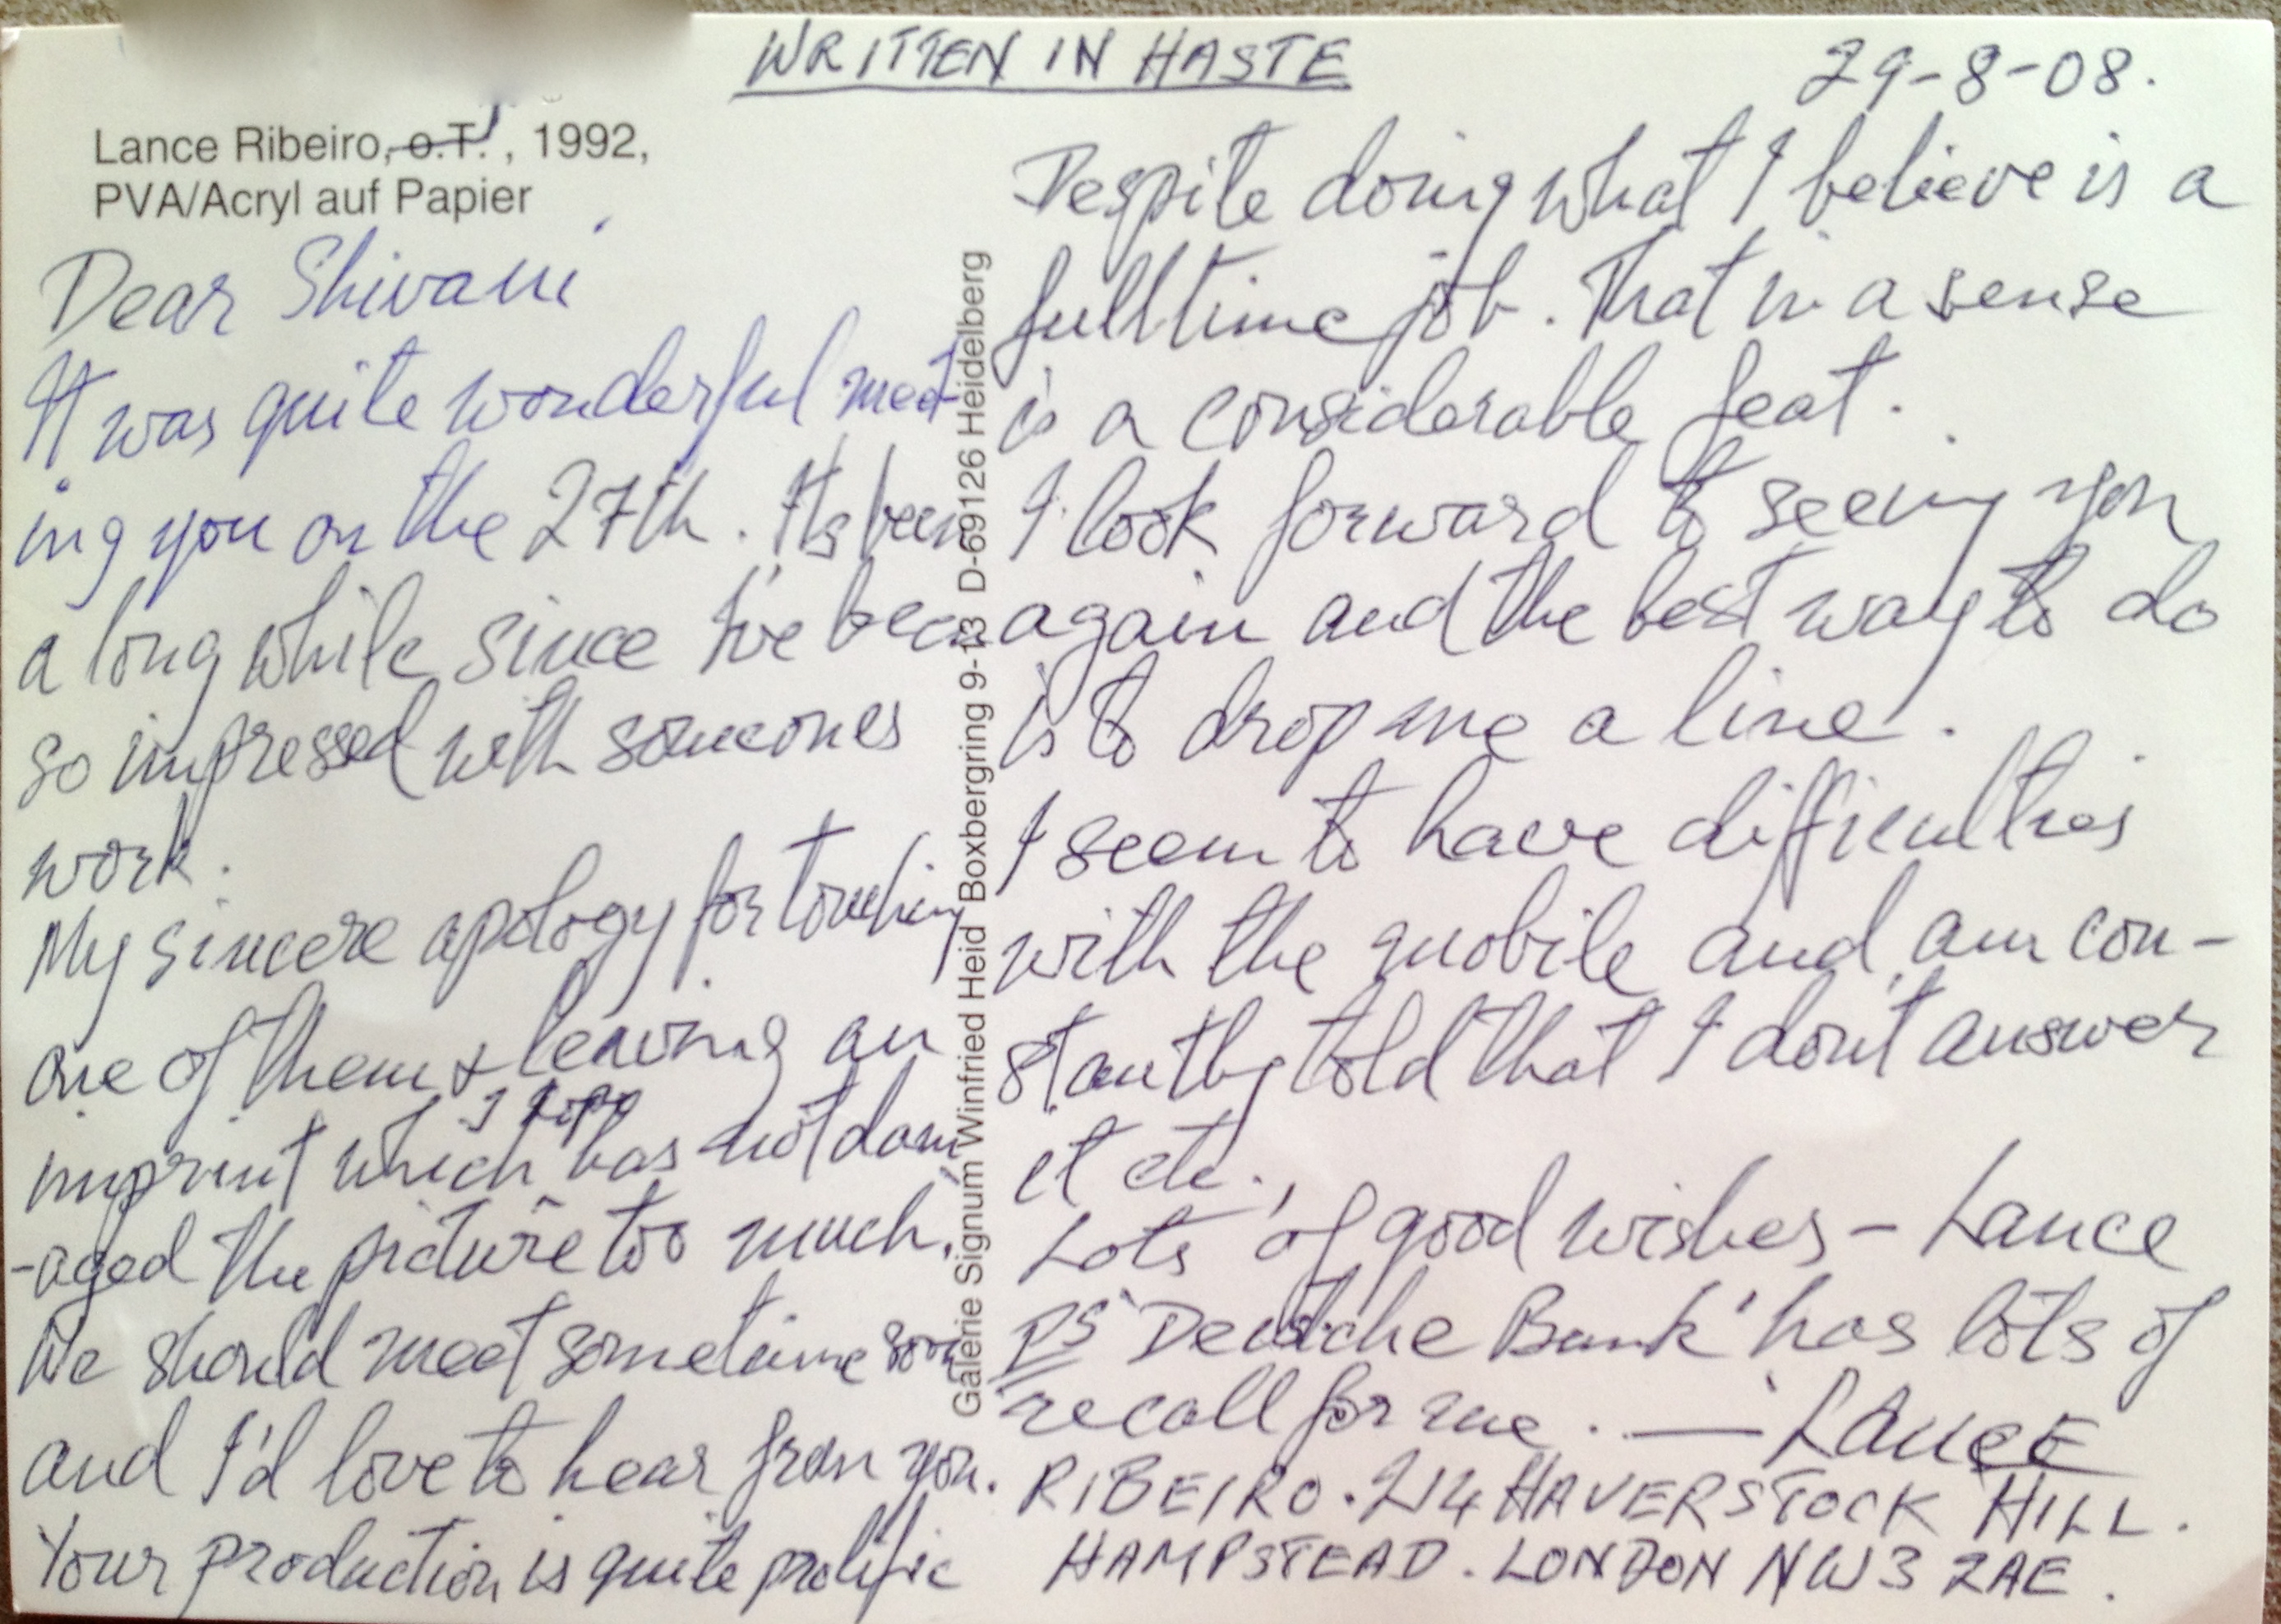 WRITTEN IN HASTE
29-8-08.
Lance Ribeiro, o.T. , 1992,
PVA/Acryl auf Papier
Dear Shivani
It was quite wonderful meet-
ing you on the 27th. Its been
a long while since I've been
so impressed with someones
work.
My sincere apology for touching
one of them & leaving an
I hope
imprint which has not dam
-aged the picture too much.
We should meet sometime soon
and I'd love to hear from you.
Your production is quite prolific
Galerie Signum Winfried Heid Boxbergring 9-13 D-69126 Heidelberg
Despite doing what I believe is a
fulltime job. That in a sense
is a considerable feat.
I look forward to seeing you
again and the best way to do
is to drop me a line.
I seem to have difficulties
with the mobile and am con-
stantly told that I don't answer
it etc.,
Lots of good wishes - Lance
PS 'Deutche Bank' has lots of
recall for me. — LANCE
RIBEIRO. 214 HAVERSTOCK HILL.
HAMPSTEAD. LONDON NW3 2AE.